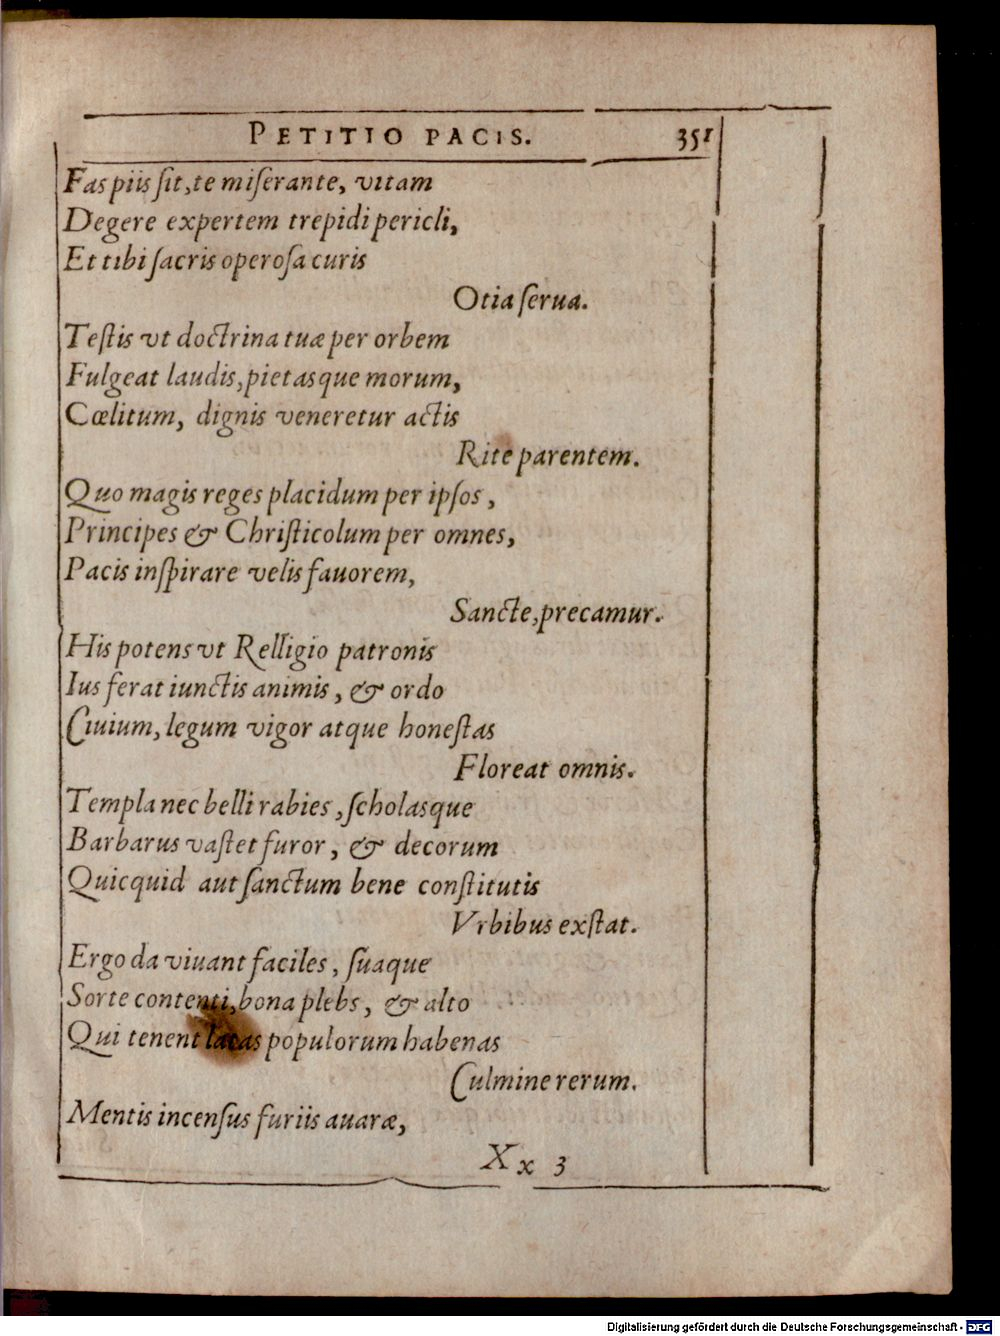 PETITIO PACIS. 351
Fas piis ſit, te miſerante, vitam
Degere expertem trepidi pericli,
Et tibi ſacris operoſa curis
Otia ſerua.
Teſtis vt doctrina tuæ per orbem
Fulgeat laudis, pietasque morum,
Cœlitum, dignis veneretur actis
Rite parentem.
Quo magis reges placidum per ipſos,
Principes & Chriſticolum per omnes,
Pacis inſpirare velis fauorem,
Sancte, precamur.
His potens vt Relligio patronis
Ius ferat iunctis animis, & ordo
Ciuium, legum vigor atque honeſtas
Floreat omnis.
Templa nec belli rabies, ſcholasque
Barbarus vaſtet furor, & decorum
Quicquid aut ſanctum bene conſtitutis
Vrbibus exſtat.
Ergo da viuant faciles, ſuaque
Sorte contenti, bona plebs, & alto
Qui tenent latas populorum habenas
Culmine rerum.
Mentis incenſus furiis auaræ,
Xx 3
Digitalisierung gefördert durch die Deutsche Forschungsgemeinschaft - DFG